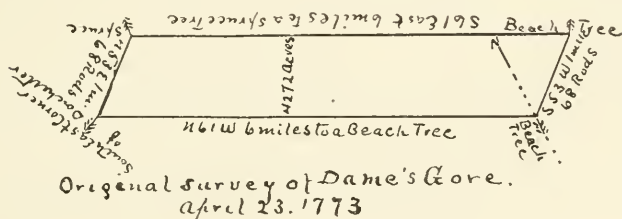 S 61 East 6 miles to a Spruce Tree
Beach Tree
Spruce
N 53 E 1 m.
68 Rods
South East Corner
of Dorchester
4272 acres
N
S 53 W 1 mile
68 Rods
N 61 W 6 miles to a Beach Tree
Beach
Tree
Original survey of Dame's Gore.
April 23. 1773